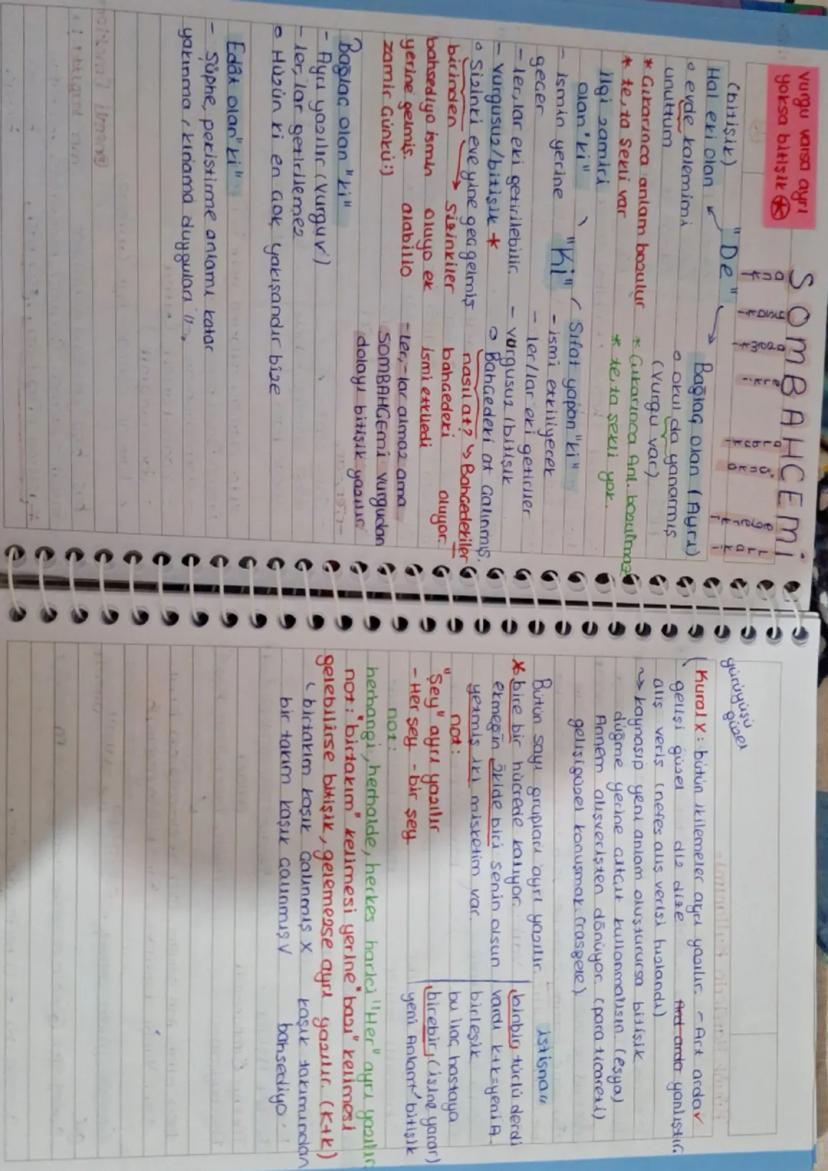 vurgu varsa ayrı
yoksa bitişik
SOMBAHÇEMİ
"De"
(bitişik)
Hal eki olan
o evde kalemimi
unuttum
* Çıkarınca anlam bozulur
* te, ta şekli var
Bağlaç olan (Ayrı)
o okul da yanarmış
(vurgu var)
* Çıkarınca Anl. bozulmaz
* te, ta şekli yok.
"Ki"
ilgi zamiri
olan "ki"
- ismin yerine
geçer
- ler, lar eki getirilebilir.
- vurgusuz/bitişik *
o Sizinki eve yine geç gelmiş
birinden → Sizinkiler
bahsediyo ismin oluyo ek
yerine gelmiş. alabilio
zamir Çünkü:)
Sıfat yapan "ki"
- ismi etkiliyecek
- ler/lar eki getirilir
- vurgusuz/bitişik
o Bahçedeki at çalınmış.
nasıl at? ↳ Bahçedekiler
bahçedeki oluyor.
ismi etkiledi
- ler,-lar almaz ama
SOMBAHÇEMİ vurgudan
dolayı bitişik yazılır
Bağlaç olan "ki"
- Ayrı yazılır (vurgu v)
- ler, lar getirilemez
o Hüzün ki en çok yakışandır bize
Edat olan "ki"
- Şüphe, pekiştirme anlamı katar
yakınma, kınama duyguları
Kural X: bütün ikilemeler ayrı yazılır. - Art arda ✓
gelişi güzel diz dize Ard arda yanlıştır.
yürüyüşü güzel
alış veriş (nefes alış verişi hızlandı)
→ kaynaşıp yeni anlam oluşturursa bitişik
düğme yerine altçıt kullanmalısın (eşya)
Annem alışverişten dönüyor. (para ticareti)
gelişigüzel konuşmak (rasgele)
Bütün sayı grupları ayrı yazılır.
* bire bir hücrede kalıyor.
ekmeğin ikide biri senin olsun
yetmiş iki misketim var.
istisna
binbir türlü derdi
vardı k+k=yeni A.
birleşik
bu ilaç hastaya
birebir (işine yarar)
yeni Anlam bitişik
not:
"Şey" ayrı yazılır
- Her şey - bir şey
not:
herhangi, herhalde, herkes harici "Her" ayrı yazılır
not: "birtakım" kelimesi yerine "bazı" kelimesi
gelebilirse bitişik, gelemezse ayrı yazılır. (k+k)
↳ birtakım kaşık çalınmış X kaşık takımından
bir takım kaşık çalınmış V bahsediyo